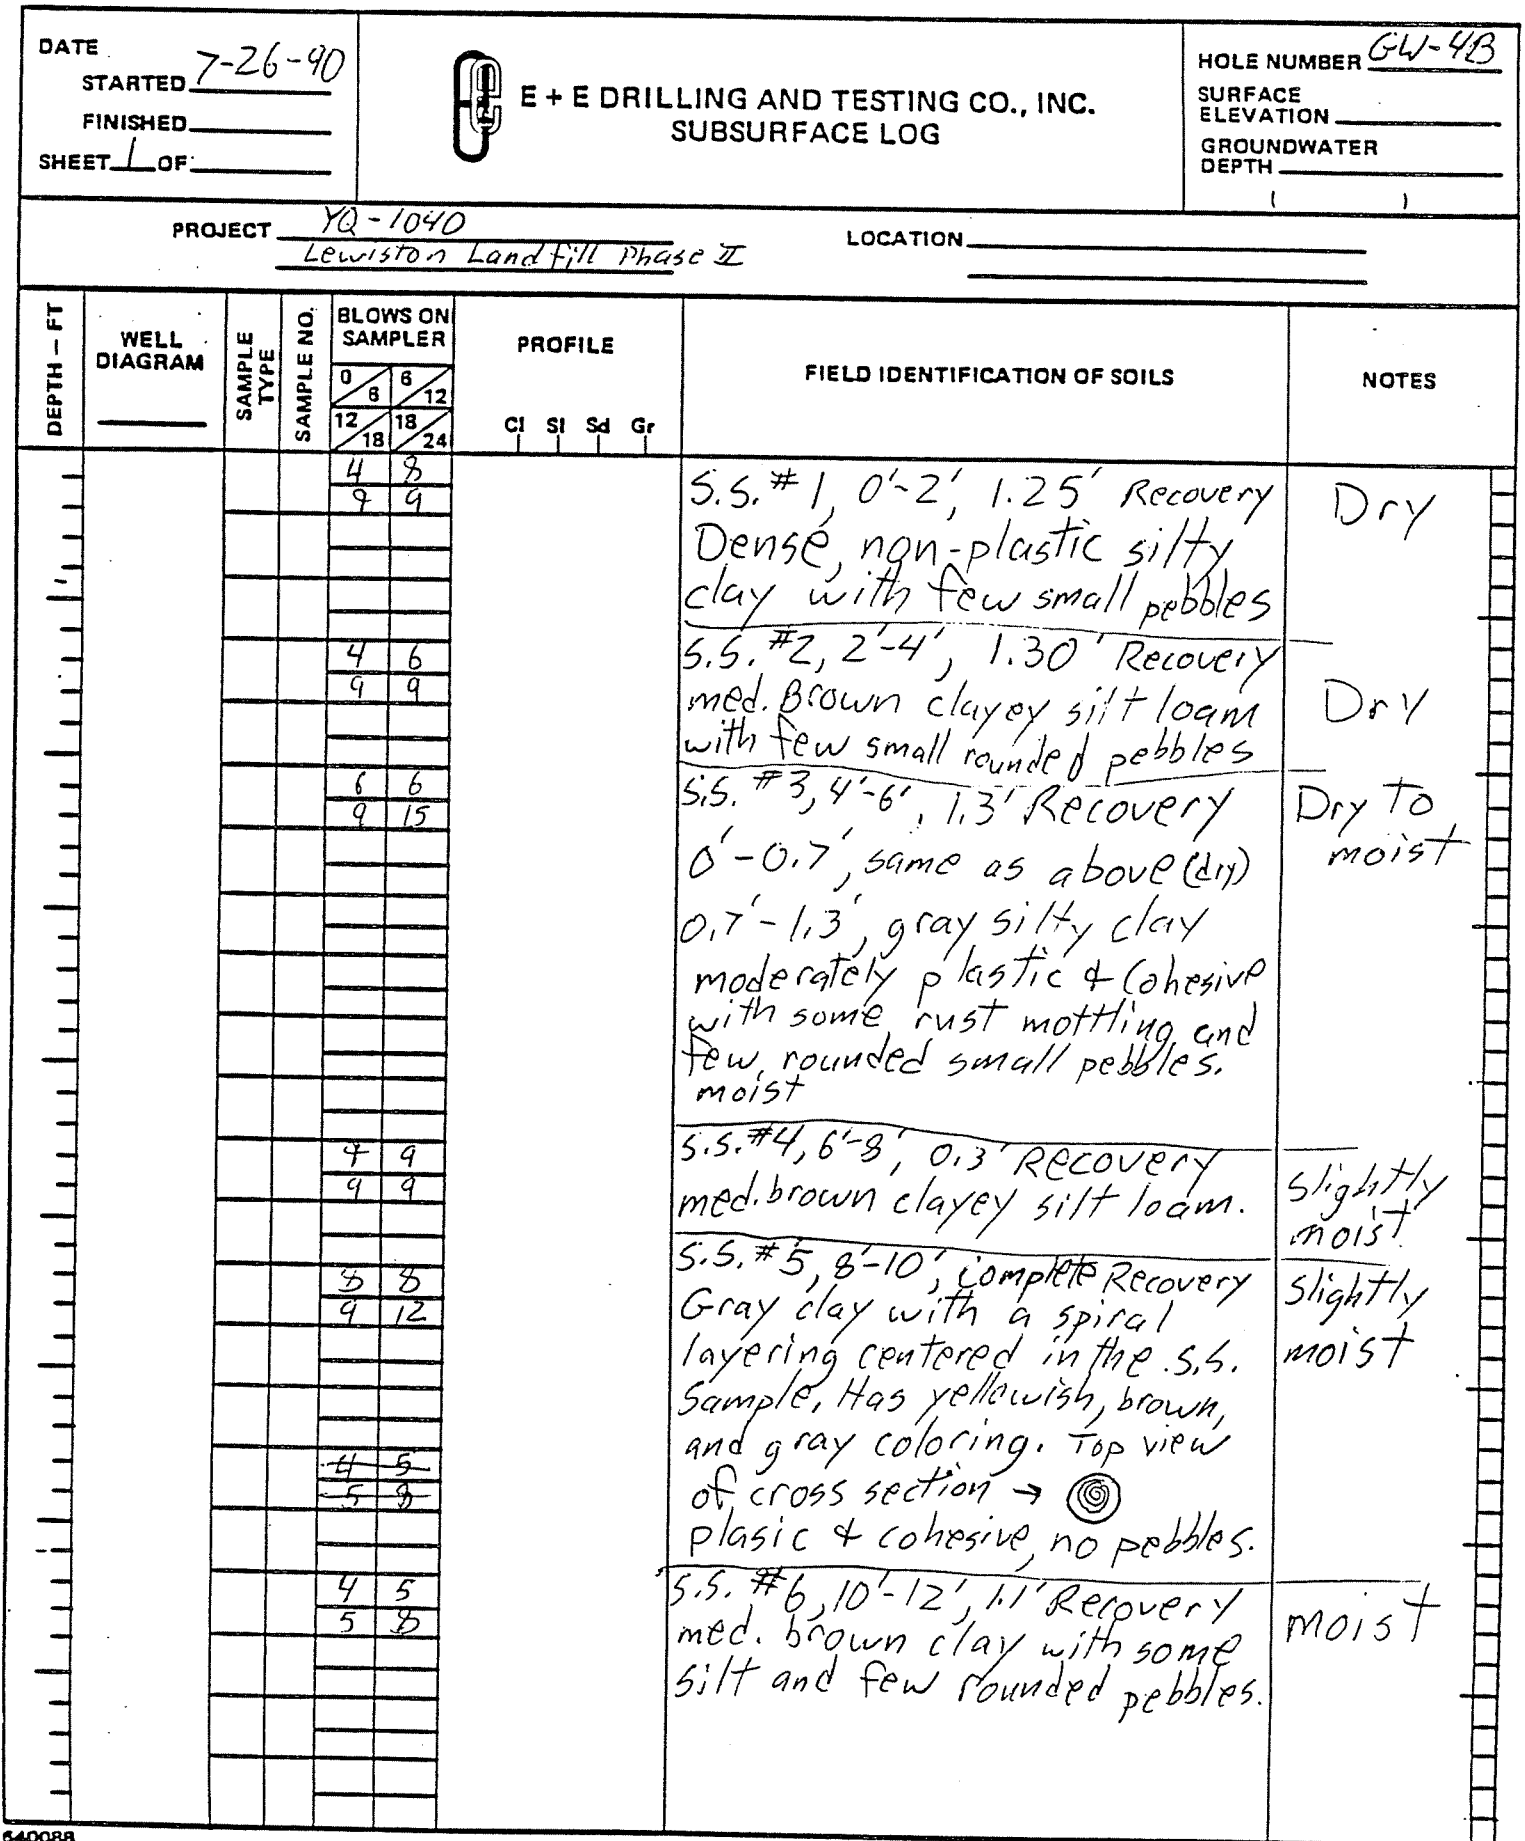 DATE
STARTED 7-26-90
FINISHED
SHEET 1 OF:
E + E DRILLING AND TESTING CO., INC.
SUBSURFACE LOG
HOLE NUMBER GW-4B
SURFACE
ELEVATION
GROUNDWATER
DEPTH
PROJECT YQ-1040
Lewiston Landfill Phase II
LOCATION
DEPTH – FT
WELL
DIAGRAM
SAMPLE
TYPE
SAMPLE NO.
BLOWS ON
SAMPLER
0 6 6 12
12 18 18 24
PROFILE
Cl Sl Sd Gr
FIELD IDENTIFICATION OF SOILS
NOTES
4 8
9 9
S.S. #1, 0'-2', 1.25' Recovery
Dense, non-plastic silty
clay with few small pebbles
Dry
4 6
9 9
S.S. #2, 2'-4', 1.30' Recovery
med. Brown clayey silt loam
with few small rounded pebbles
Dry
6 6
9 15
S.S. #3, 4'-6', 1.3' Recovery
0'-0.7', same as above (dry)
0.7'-1.3', gray silty clay
moderately plastic & Cohesive
with some rust mottling and
few, rounded small pebbles.
moist
Dry To
moist
9
9 9
S.S. #4, 6'-8', 0.3' Recovery
med. brown clayey silt loam.
Slightly
moist
8 8
9 12
S.S. #5, 8'-10', complete Recovery
Gray clay with a spiral
layering centered in the S.S.
Sample. Has yellowish, brown,
and gray coloring. Top view
of cross section →
plasic & cohesive, no pebbles.
Slightly
moist
4 5
5 8
4 5
5 8
S.S. #6, 10'-12', 1.1' Recovery
med. brown clay with some
silt and few rounded pebbles.
moist
640088